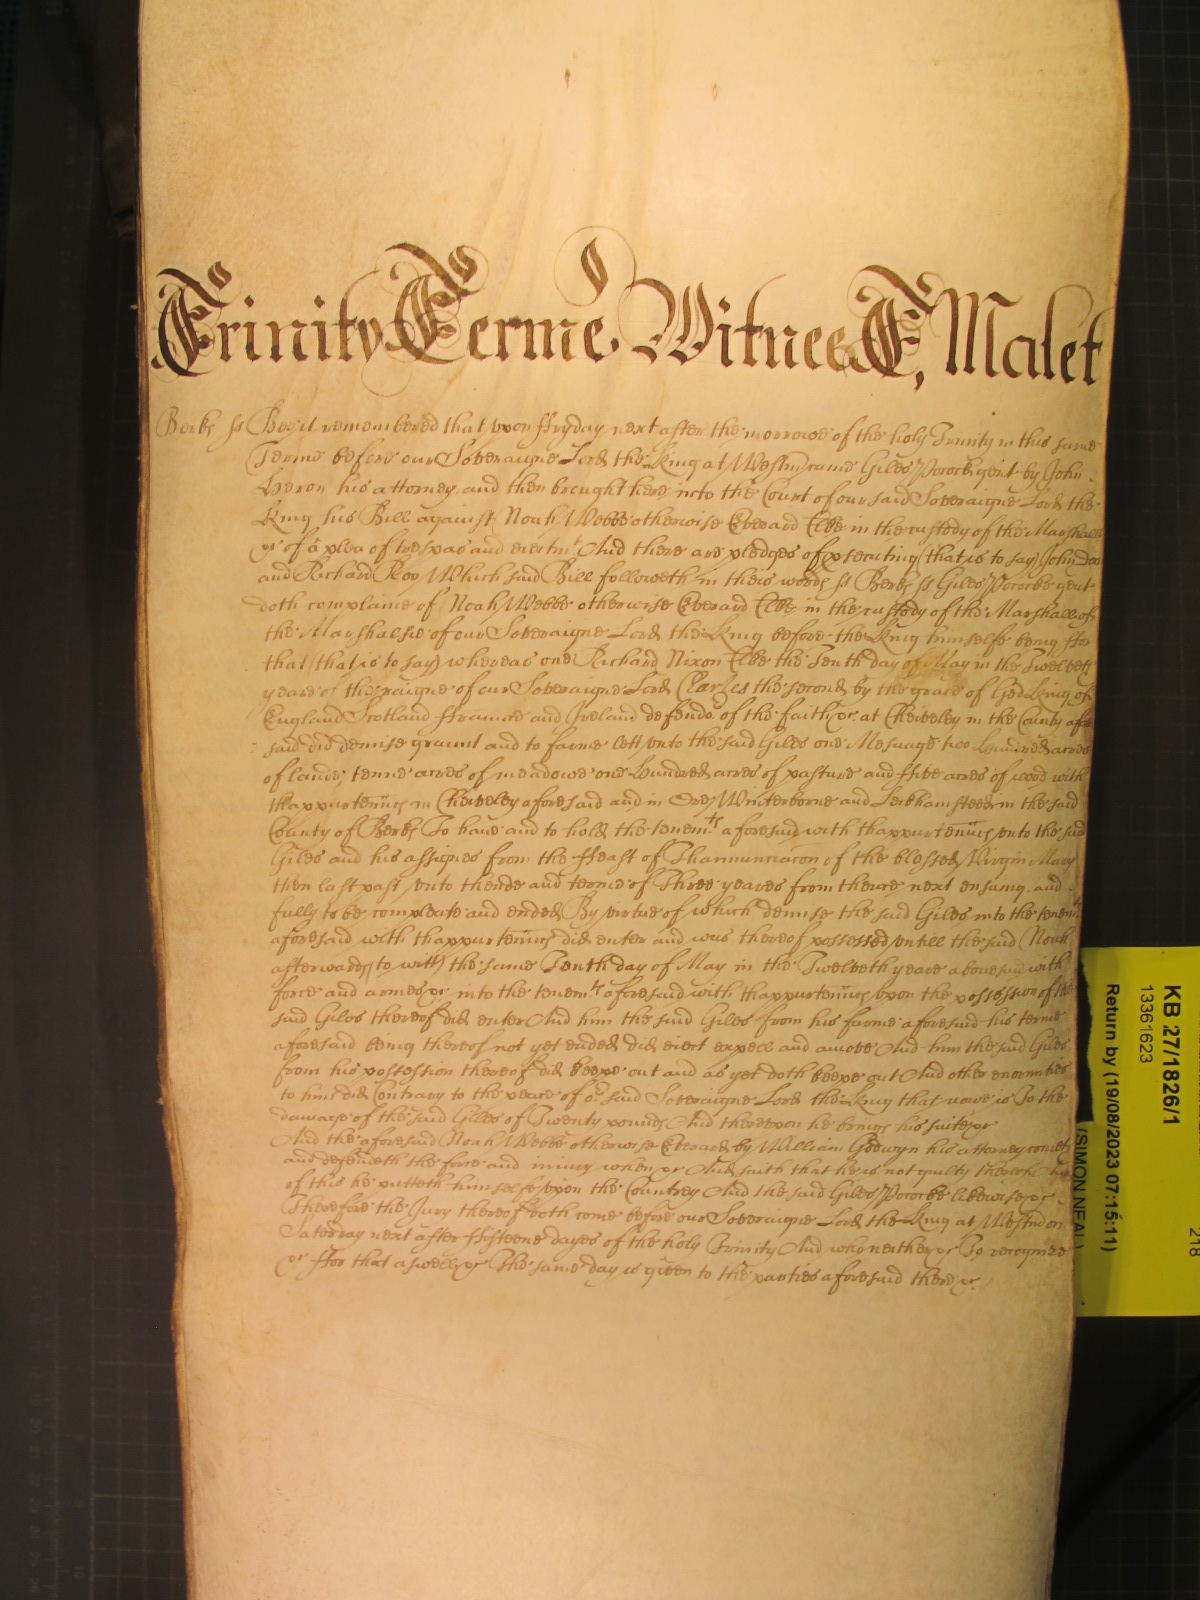 Trinity Terme Witnes T, Malet
Berks ss Bee it remembered that upon ffryday next after the morrowe of the holy Trinity in this same
Terme before our Soveraigne Lord the King at Westm came Giles Pocock gent by John
Heron his attorney and then brought here into the Court of our said Soveraigne Lord the
King his Bill against Noah Webbe otherwise Everard in the custody of the Marshall
&c of a plea of trespas and eiectmt And there are pledges of prsecuting (that is to say) John Doo
and Richard Roo Which said Bill followeth in theis words ss Berks ss Giles Pococke gent
doth complaine of Noah Webbe otherwise Everard in the custody of the Marshall of
the Marshalsie of our Soveraigne Lord the King before the King himselfe being ffor
that (that is to say) whereas one Richard Nixon the Tenth day of May in the Twelveth
yeare of the raigne of our Soveraigne Lord Charles the second by the grace of God King of
England Scotland ffraunce and Ireland defendr of the faith &c at Cheiveley in the County afore
said did demise graunt and to farme lett unto the said Giles one Mesuage two Hundred acres
of lande, tenne acres of meadowe one Hundred acres of pasture and ffive acres of wood with
thappurtenncs in Cheiveley aforesaid and in Winterborne and Leckhamsteed in the said
County of Berks To have and to hold the tenemts aforesaid with thappurtenncs unto the said
Giles and his assignes from the ffeast of Thannunciacon of the blessed Virgin Mary
then last past unto thende and terme of Three yeares from thence next ensuing and
fully to be compleate and ended By virtue of which demise the said Giles into the tenemts
aforesaid with thappurtenncs did enter and was thereof possessed untill the said Noah
afterwards (to witt) the same Tenth day of May in the Twelveth yeare abovesaid with
force and armes &c into the tenemts aforesaid with thappurtenncs upon the possession of the
said Giles thereof did enter And him the said Giles from his farme aforesaid his terme
aforesaid being thereof not yet ended did eiect expell and amove And him the said Giles
from his possession thereof did keepe out and as yet doth keepe out And other enormities
to him did Contrary to the peace of or said Soveraigne Lord the King that nowe is To the
damage of the said Giles of Twenty pounds And thereupon he brings his suite &c
And the aforesaid Noah Webbe otherwise Everard by William Godwyn his attorney cometh
and defendeth the force and iniury when &c And saith that he is not guilty thereof And
of this he putteth himselfe upon the Countrey And the said Giles Pococke likewise &c
Therefore the Jury thereof doth come before our Soveraigne Lord the King at Westm on
Saterday next after ffifteene dayes of the holy Trinity And who neither &c To recognize
&c ffor that aswell &c The same day is given to the parties aforesaid there &c
KB 27/1826/1
13361623
Return by (19/08/2023 07:15:11)
(SIMON NEAL)
218